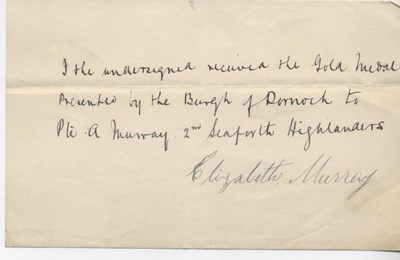 I the undersigned received the Gold Medal
presented by the Burgh of Dornoch to
Pte A Murray 2nd Seaforth Highlanders
Elizabeth Murray